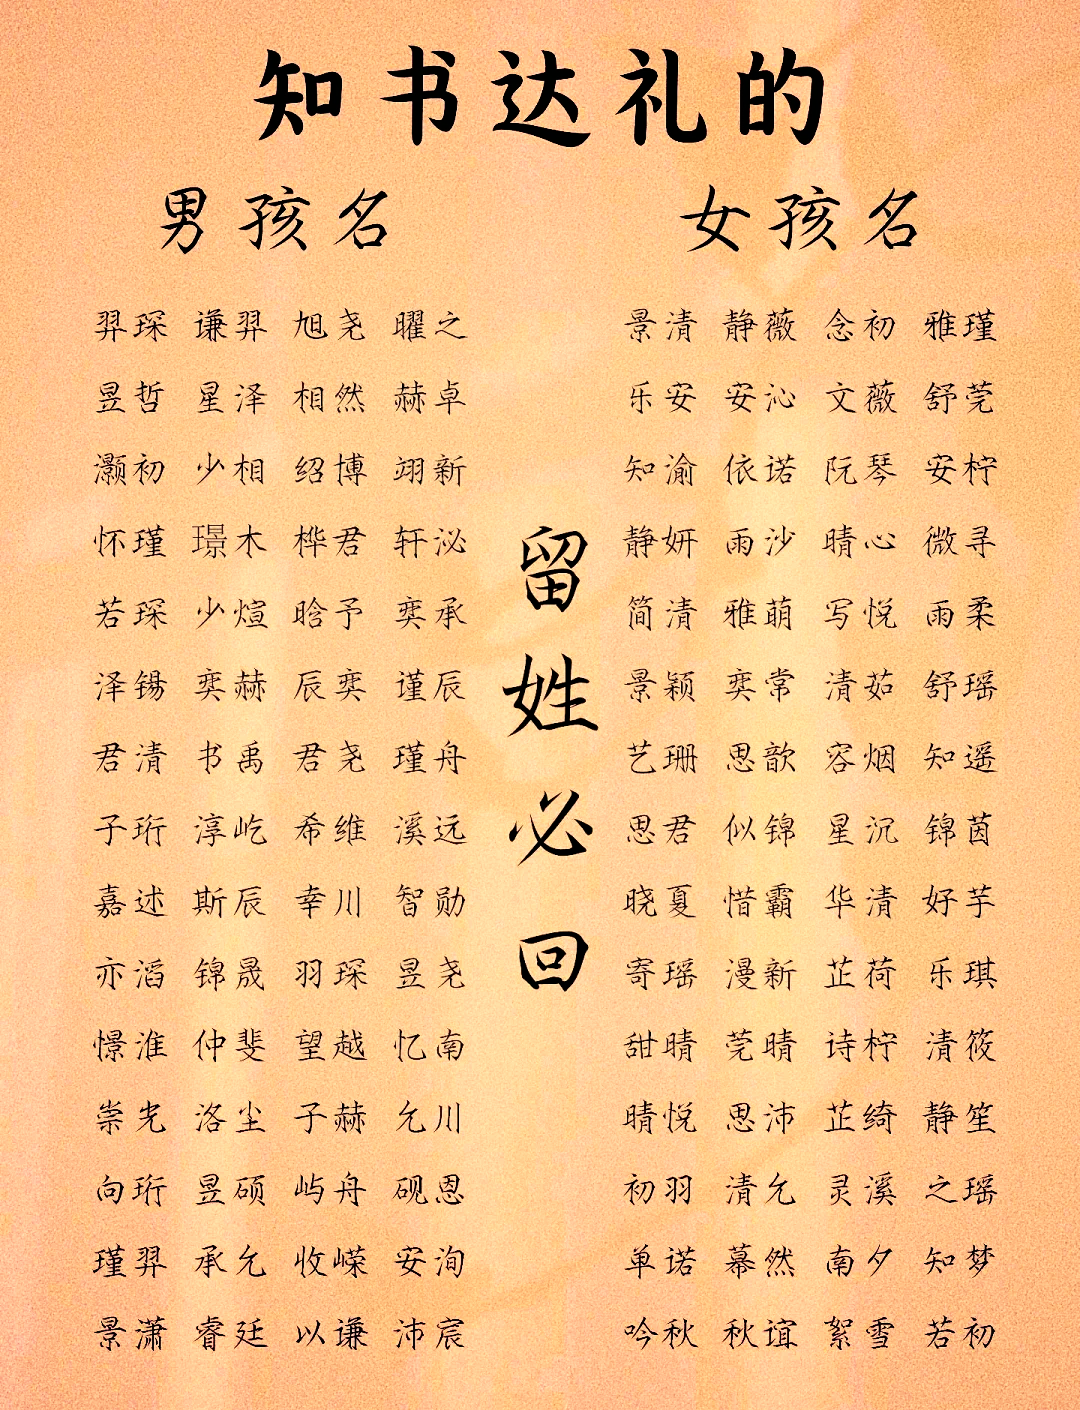 知书达礼的
男孩名
羿琛 谦羿 旭尧 曜之
昱哲 星泽 相然 赫卓
灏初 少相 绍博 翊新
怀瑾 璟木 桦君 轩泌
若琛 少煊 晗予 奕承
泽锡 奕赫 辰奕 谨辰
君清 书禹 君尧 瑾舟
子珩 淳屹 希维 溪远
嘉述 斯辰 幸川 智勋
亦滔 锦晟 羽琛 昱尧
憬淮 仲斐 望越 忆南
崇光 洛尘 子赫 允川
向珩 昱硕 屿舟 砚恩
瑾羿 承允 收嵘 安洵
景潇 睿廷 以谦 沛宸
留姓必回
女孩名
景清 静薇 念初 雅瑾
乐安 安沁 文薇 舒莞
知渝 依诺 阮琴 安柠
静妍 雨沙 晴心 微寻
简清 雅萌 写悦 雨柔
景颖 奕常 清茹 舒瑶
艺珊 思歆 容烟 知遥
思君 似锦 星沉 锦茵
晓夏 惜霸 华清 好芋
寄瑶 漫新 芷荷 乐琪
甜晴 莞晴 诗柠 清筱
晴悦 思沛 芷绮 静笙
初羽 清允 灵溪 之瑶
单诺 慕然 南夕 知梦
吟秋 秋谊 絮雪 若初